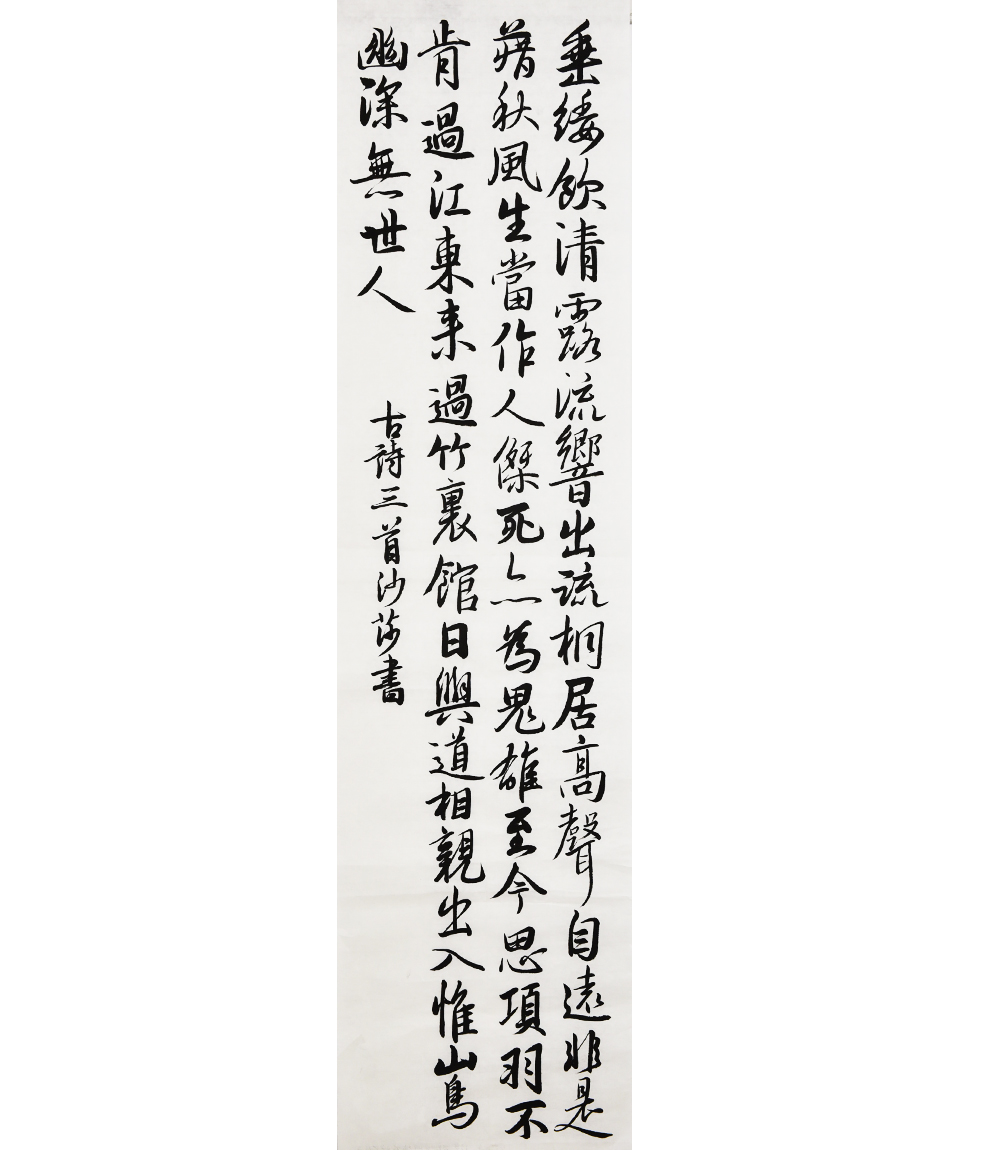 垂緌飲清露流響出疏桐居高聲自遠非是
藉秋風生當作人傑死亦為鬼雄至今思項羽不
肯過江東来過竹裏館日與道相親出入惟山鳥
幽深無世人
古詩三首沙莎書